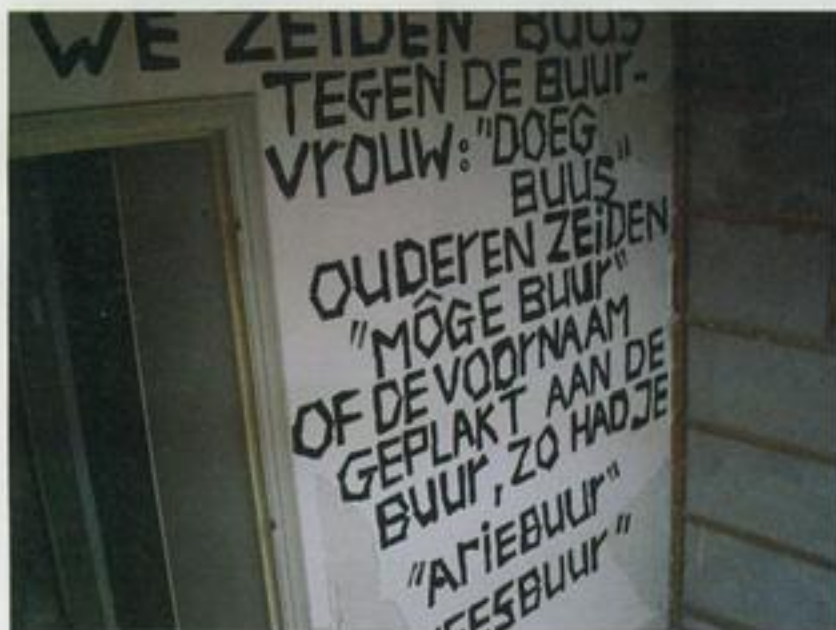 WE ZEIDEN BUUS
TEGEN DE BUUR-
VROUW: "DOEG
BUUS"
OUDEREN ZEIDEN
"MÔGE BUUR"
OF DE VOORNAAM
GEPLAKT AAN DE
BUUR, ZO HAD JE
"ARIEBUUR"